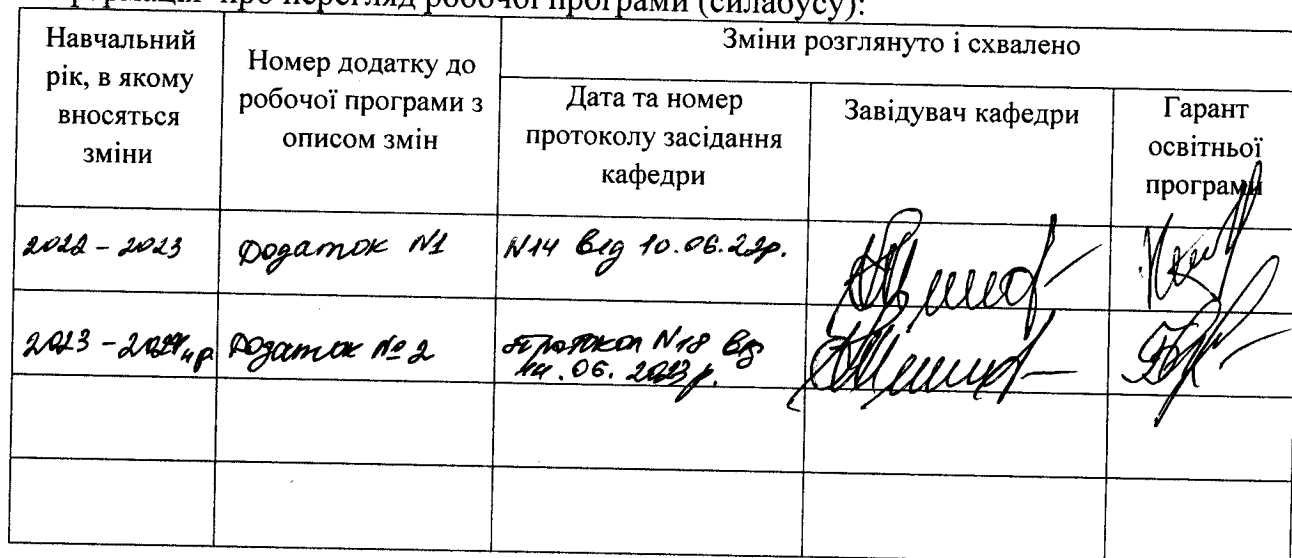 про перегляд робочої програми (силабусу):
Навчальний
рік, в якому
вносяться
зміни
Номер додатку до
робочої програми з
описом змін
Зміни розглянуто і схвалено
Дата та номер
протоколу засідання
кафедри
Завідувач кафедри
Гарант
освітньої
програми
2022 - 2023
Додаток №1
№14 від 10.06.22р.
2023 - 2024 н.р
Додаток № 2
Протокол №18 від
06. 2023 р.